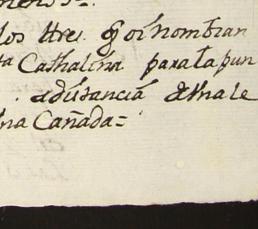 los tres q̃ oi nombran
ta Cathalina para la pun
adistancia de una le
una Cañada=